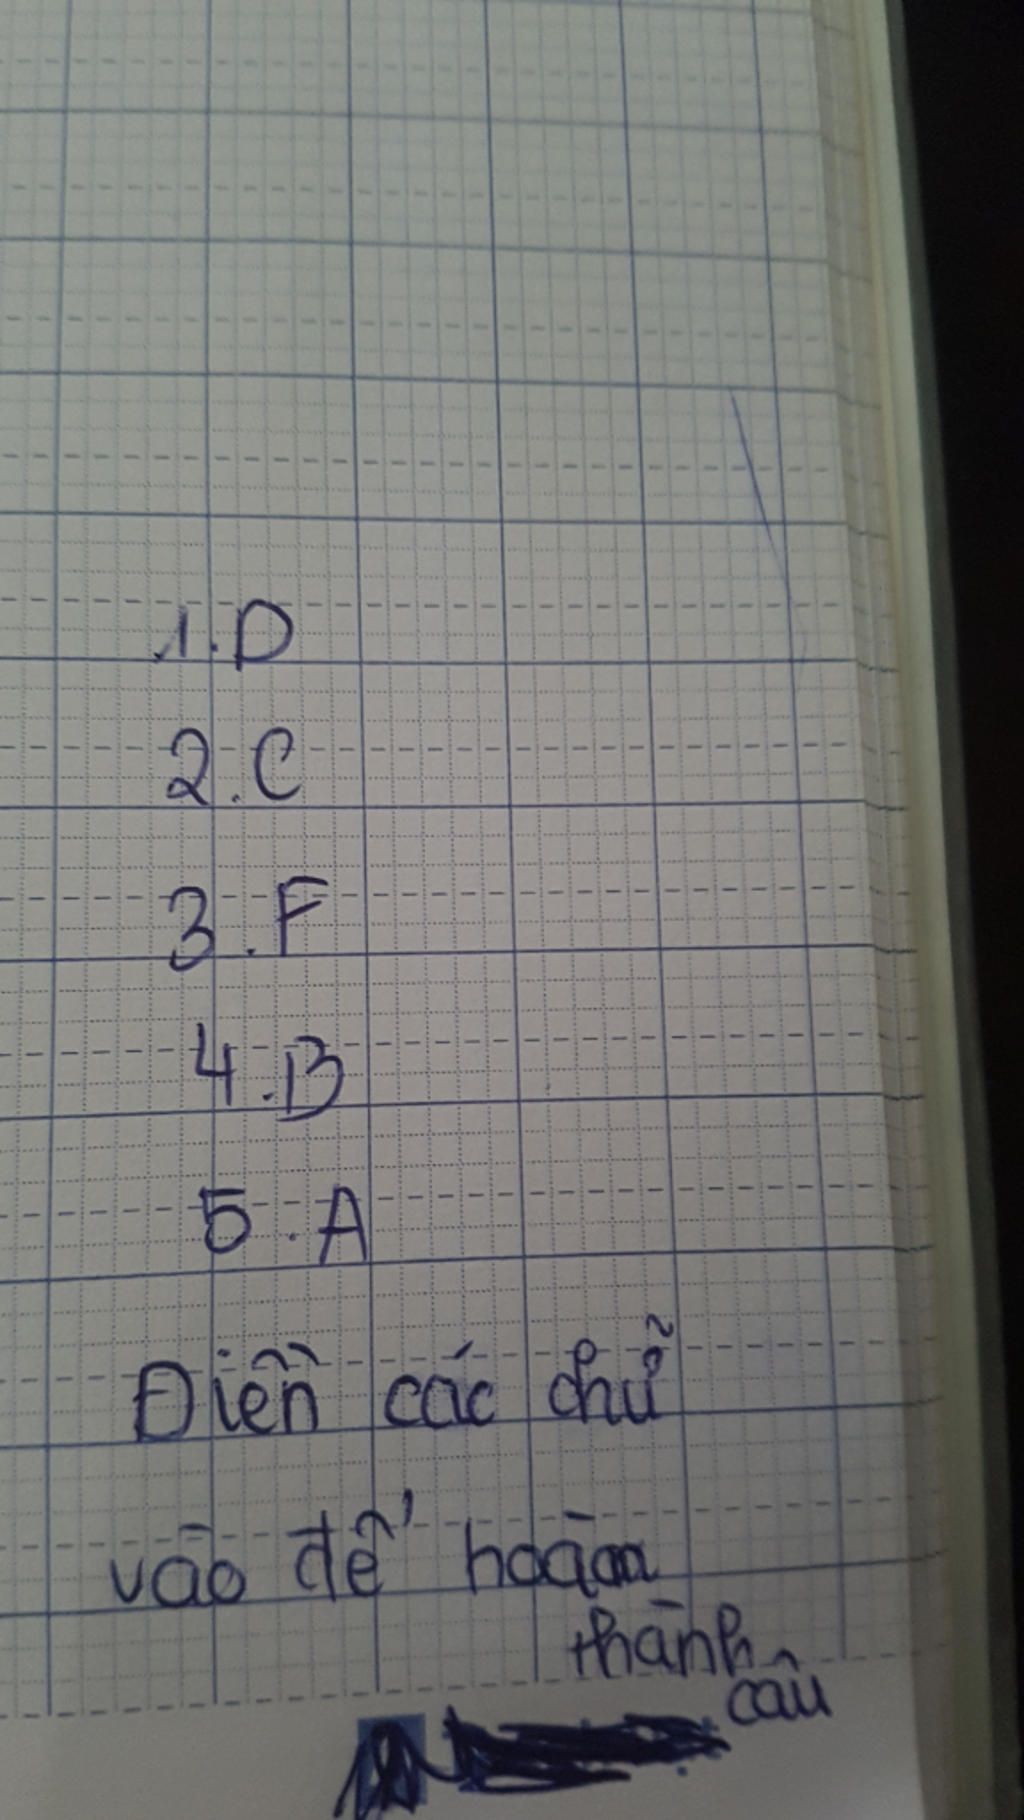 1.D
2.C
3.F
4.B
5.A
Điền các chữ
vào để hoàn
thành
câu